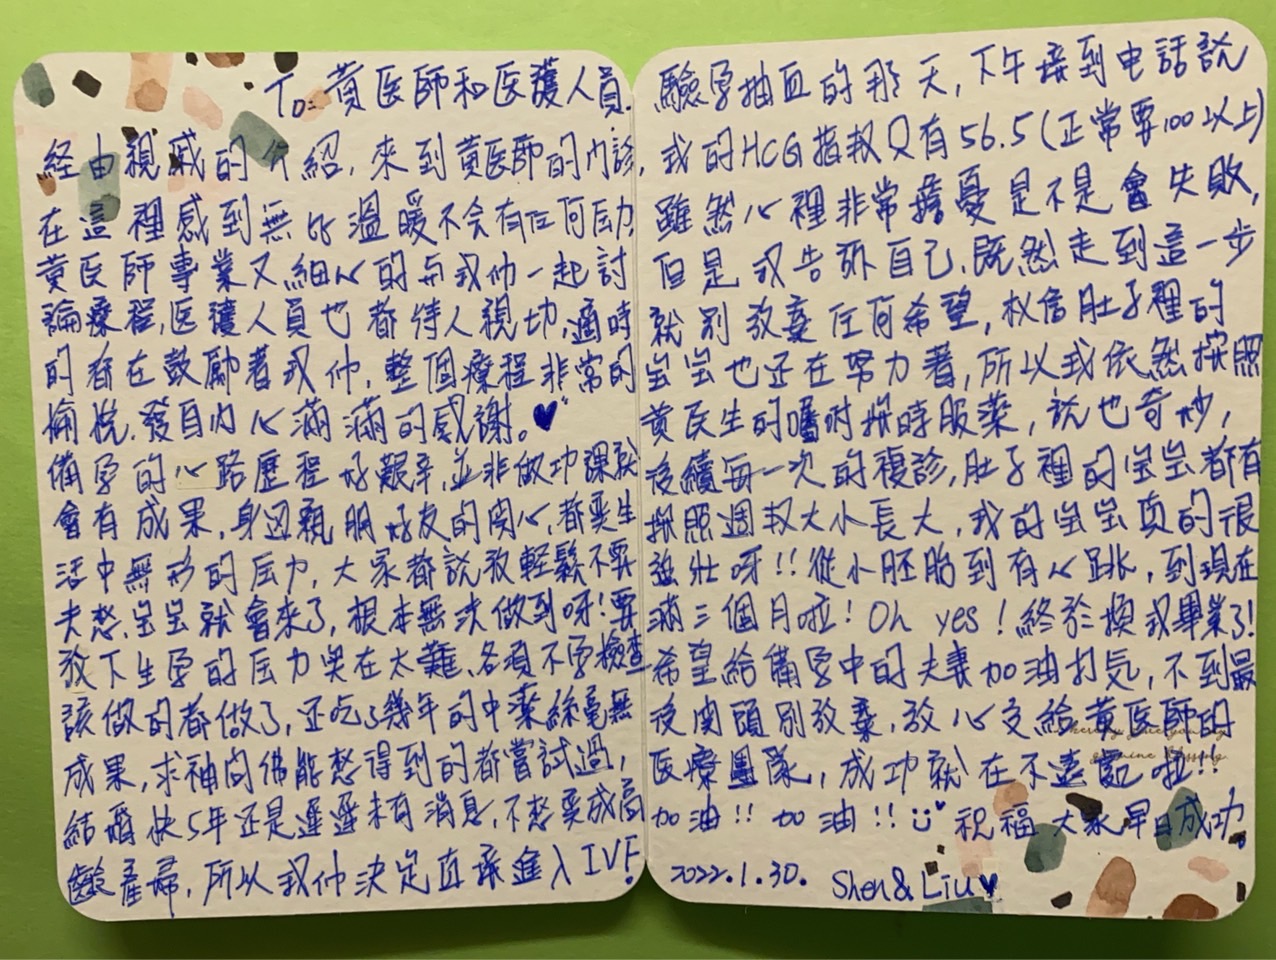 To: 黃医師和医護人員.
経由親戚的介紹, 來到黃医師的門診,
在這裡感到無比溫暖不会有任何压力
黃医師專業又細心的与我们一起討
論療程, 医護人員也都待人親切, 適時
的都在鼓勵著我们, 整個療程非常的
愉悅, 發自内心滿滿的感謝。
備孕的心路歷程好艱辛, 並非做功課就
會有成果, 身边親朋好友的関心, 都変生
活中無形的压力, 大家都說放輕鬆不要
去想, 宝宝就會來了, 根本無法做到呀! 要
放下生孕的压力実在太難、各項不孕檢查
該做的都做了, 还吃了幾年的中薬絲毫無
成果, 求神問佛能想得到的都嘗試過,
結婚快5年还是遲遲未有消息, 不想変成高
齡產婦, 所以我们決定直接進入IVF!
驗孕抽血的那一天, 下午接到电話說
我的HCG指数只有56.5(正常要100以上)
雖然心裡非常擔憂是不是會失敗,
但是我告訴自己, 既然走到這一步
就別放棄任何希望, 相信肚子裡的
宝宝也还在努力著, 所以我依然按照
黃医生的囑咐按時服薬, 說也奇妙,
後續每一次的複診, 肚子裡的宝宝都有
按照週数大小長大, 我的宝宝真的很
強壯呀!! 從小胚胎到有心跳, 到現在
滿三個月啦! Oh yes! 終於換我畢業了!
希望給備孕中的夫妻加油打気, 不到最
後関頭別放棄, 放心交給黃医師的
医療團隊, 成功就在不遠處啦!!
加油!! 加油!! 祝福大家早日成功
2022.1.30. Shen & Liu